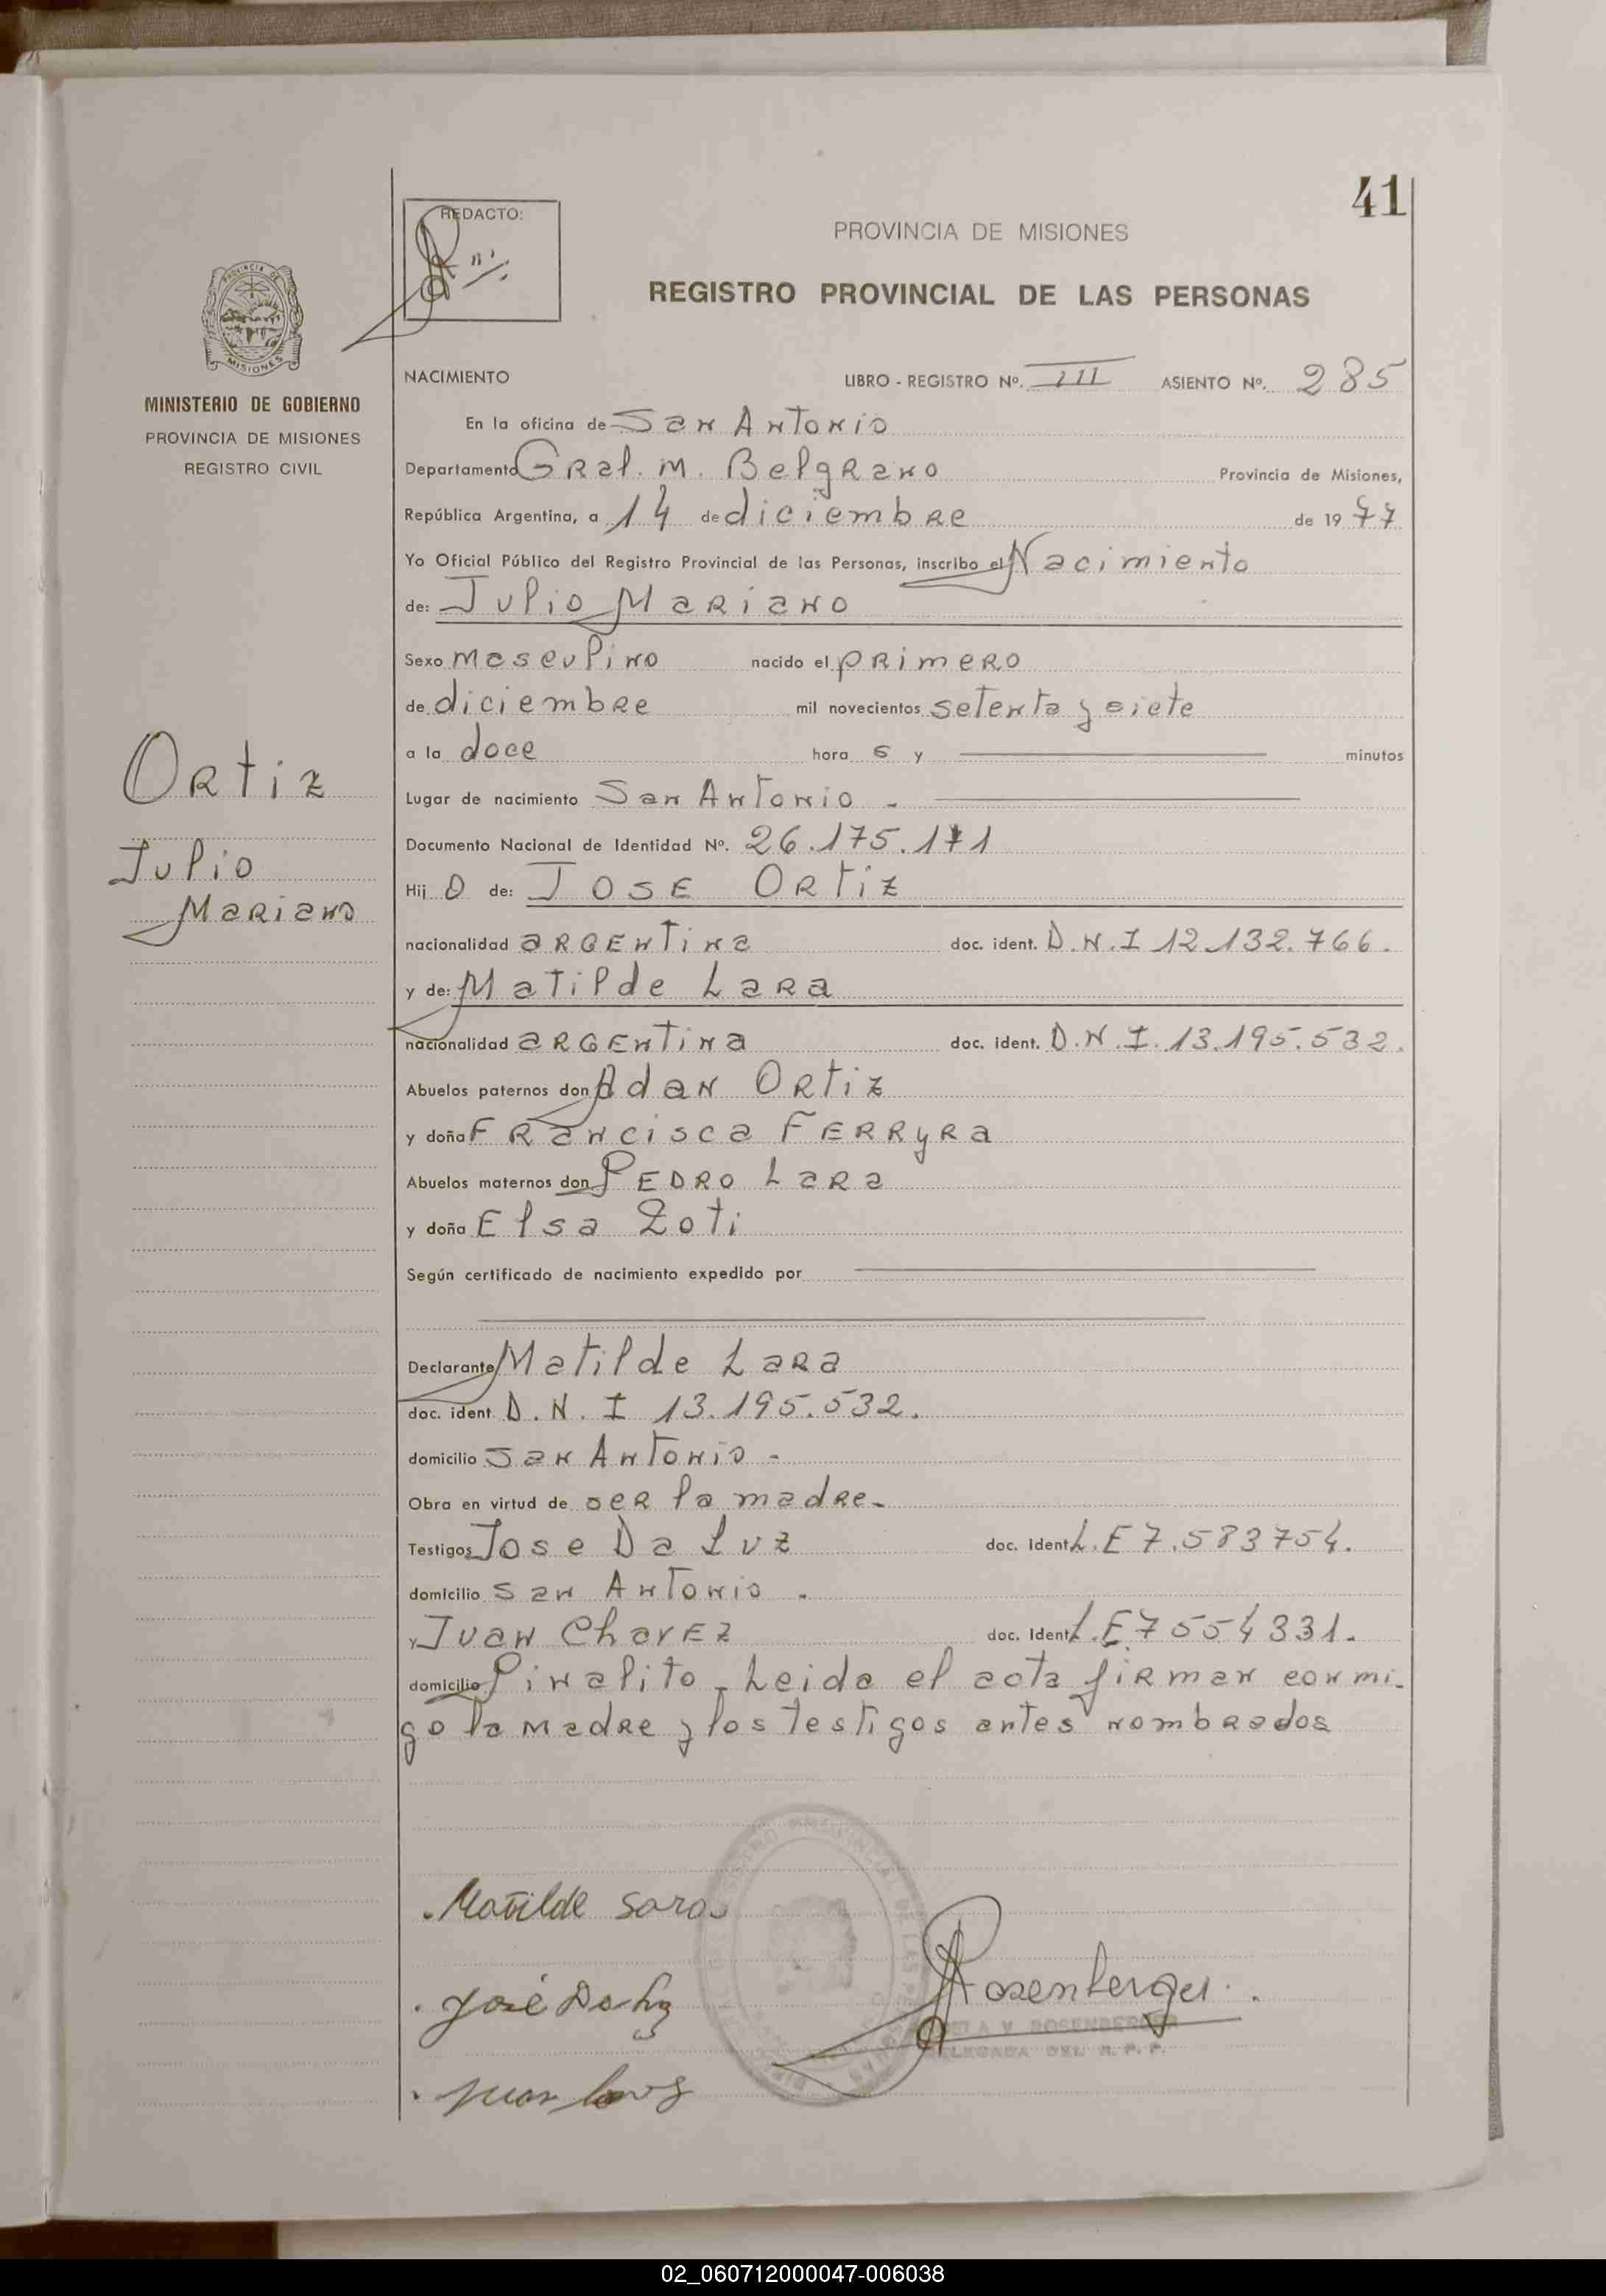 41
REDACTO:
PROVINCIA DE MISIONES
REGISTRO PROVINCIAL DE LAS PERSONAS
PROVINCIA DE
MISIONES
MINISTERIO DE GOBIERNO
PROVINCIA DE MISIONES
REGISTRO CIVIL
NACIMIENTO LIBRO - REGISTRO Nº. III ASIENTO Nº. 285
En la oficina de San Antonio
Departamento Gral. M. Belgrano Provincia de Misiones,
República Argentina, a 14 de diciembre de 1977
Yo Oficial Público del Registro Provincial de las Personas, inscribo el Nacimiento
de: Julio Mariano
Sexo masculino nacido el primero
de diciembre mil novecientos setenta y siete
a la doce hora s y minutos
Ortiz
Julio
Mariano
Lugar de nacimiento San Antonio -
Documento Nacional de Identidad Nº. 26.175.171
Hij o de: JOSE Ortiz
nacionalidad argentina doc. ident. D.N.I 12.132.766.
y de: Matilde Lara
nacionalidad argentina doc. ident. D.N.I. 13.195.532.
Abuelos paternos don Adan Ortiz
y doña Francisca Ferryra
Abuelos maternos don PEDRO Lara
y doña Elsa Zoti
Según certificado de nacimiento expedido por
Declarante Matilde Lara
doc. ident. D.N.I 13.195.532.
domicilio San Antonio -
Obra en virtud de ser la madre-
Testigos Jose Da Luz doc. ident. L.E 7.583754.
domicilio San Antonio -
y Juan Chavez doc. ident. L.E.7554331.
domicilio Pinalito - Leida el acta firman conmi-
go la madre y los testigos antes nombrados
Matilde Lara
José Da Luz
Rosenberger.
ROSENBERGER
DELEGADA DEL R. P. P.
02_060712000047-006038